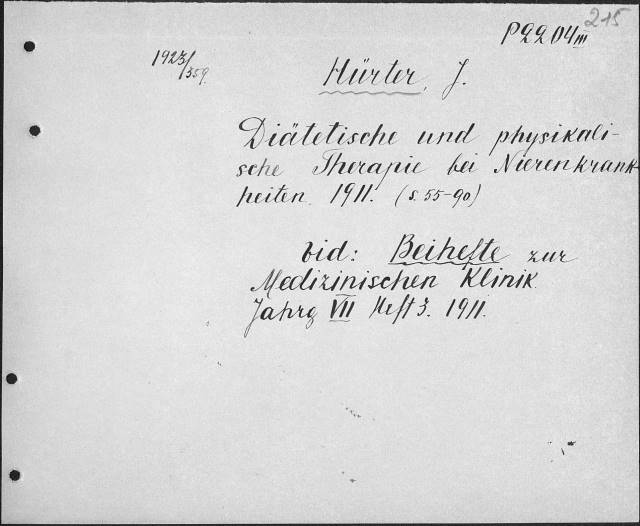 215
P2204III
1923/359.
Hürter, J.
Diätetische und physikali-
sche Therapie bei Nierenkrank-
heiten. 1911. (S. 55-90)
bid: Beihefte zur
Medizinischen Klinik.
Jahrg VII Heft 3. 1911.